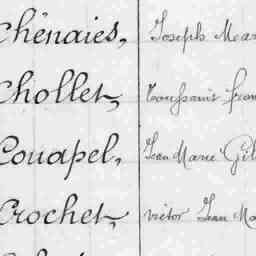 Chénaies, Joseph Mar
Chollet, Toussaint fran
Couapel, Jean Marie Gil
Crochet, victor Jean Ma